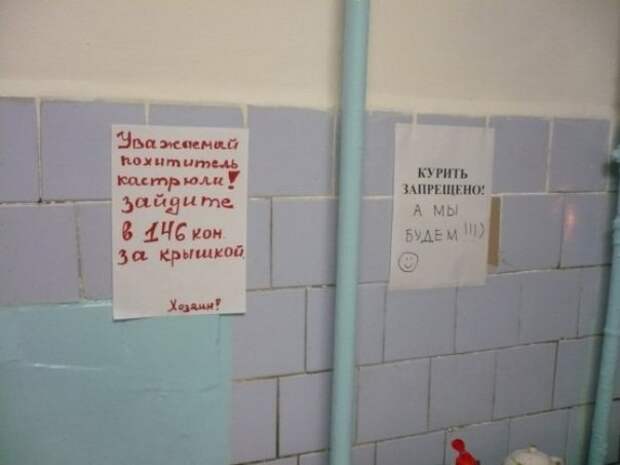 Уважаемый
похититель
кастрюли!
зайдите
в 146 ком.
за крышкой
Хозяин!
КУРИТЬ
ЗАПРЕЩЕНО!
А МЫ
БУДЕМ!!!)